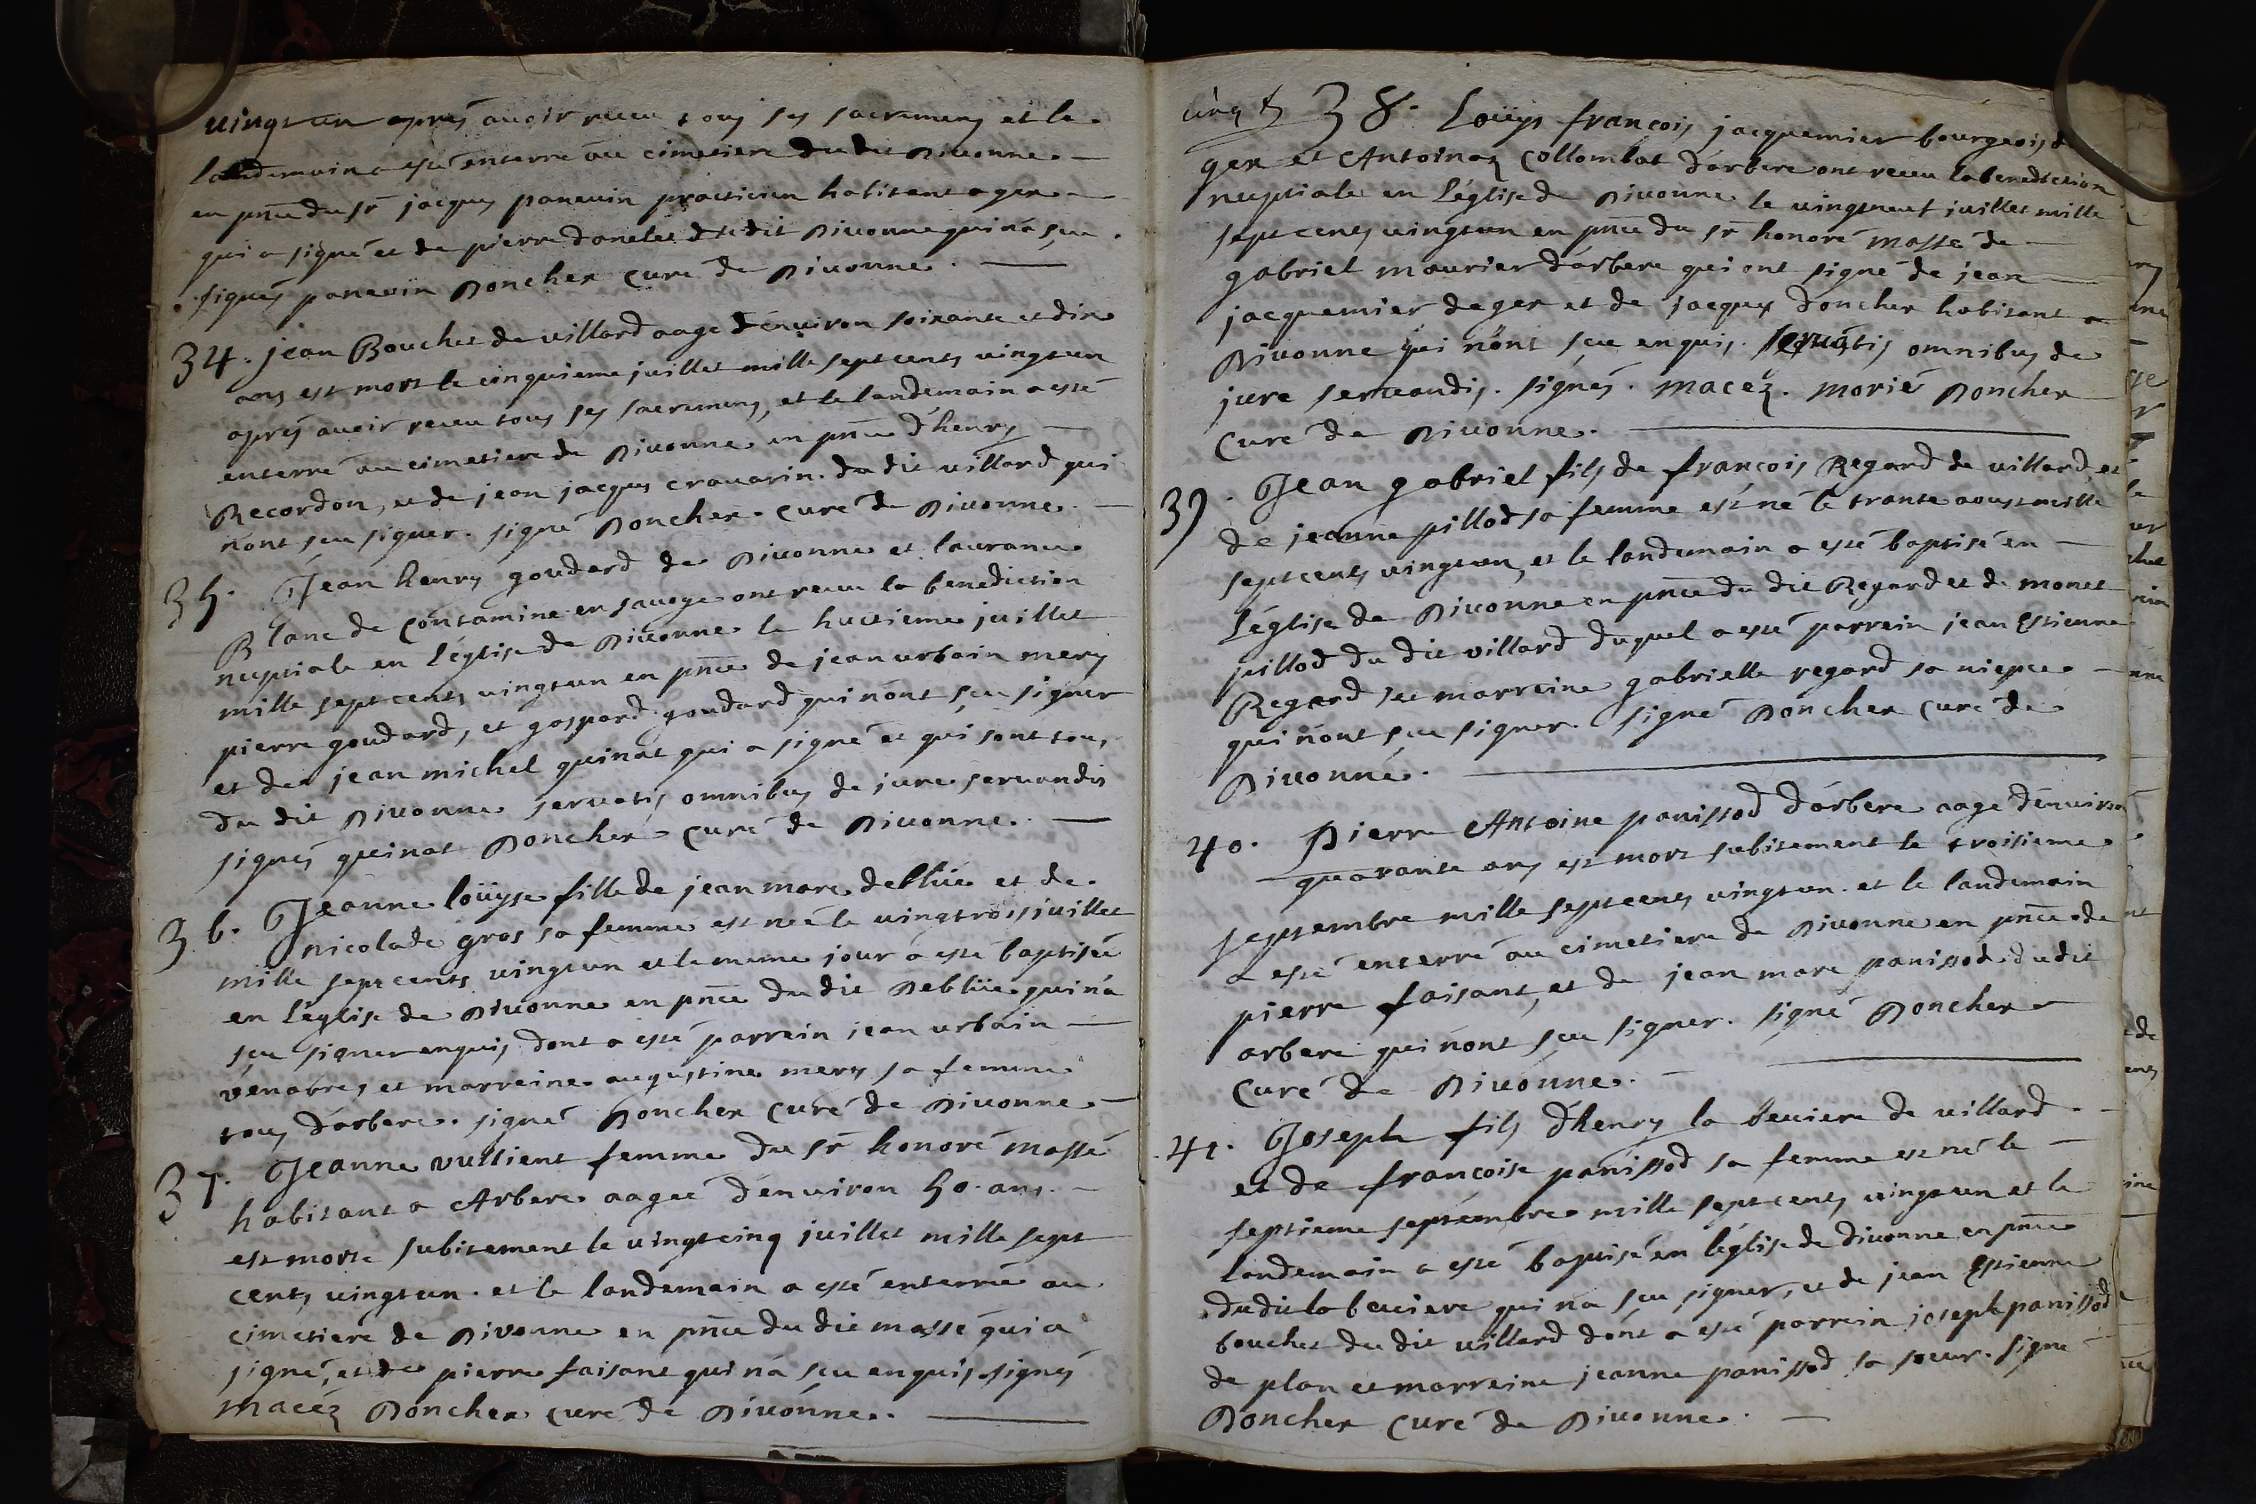 vingt un apres avoir receu tous ses sacremens et le
landemain a esté enterré au cimetiere du dit Divonne
en pñce du sr jacques panevin practicien habitant a gex
qui a signé et de pierre donelet dudit Divonne qui n'a sçeu
signés panevin Doncher curé de Divonne.
34. jean Bouchet de villard aagé d'environ soixante et dix
ans est mort le cinquieme juillet mille sept cents vingt un
après avoir receu tous ses sacremens, et le landemain a esté
enterré au cimetiere de Divonne en pñce d'henry
Recordon, et de jean jacques cravarin du dit villard qui
n'ont sçeu signer. signé Doncher curé de Divonne.
35. Jean henry goudard de Divonne et laurance
Blanc de contamine en savoye ont receu la benediction
nuptiale en l'église de Divonne le huitieme juillet
mille sept cents vingt un en pñce de jean urbain mery
pierre goudard, et gaspard goudard qui n'ont sçeu signer
et de jean michel quinat qui a signé et qui sont tous
du dit Divonne servatis omnibus de jure servandis
signés quinat Doncher curé de Divonne.
36. Jeanne loüyse fille de jean marc deblüe et de
nicolade gros sa femme est née le vingt trois juillet
mille sept cents vingt un et le meme jour a esté baptisée
en l'église de Divonne en pñce du dit Deblüe qui n'a
sçeu signer enquis dont a esté parrein jean urbain
venabres et marreine augustine mery sa femme
tous d'arbere. signé Doncher curé de Divonne
37. Jeanne vulliens femme du sr honoré massé
habitant a Arbere aagée d'environ 50. ans.
est morte subitement le vingt cinq juillet mille sept
cents vingt un. et le landemain a esté enterrée au
cimetiere de Divonne en pñce du dit massé qui a
signé, et de pierre faisant qui n'a sçeu enquis. signés
Macéz Doncher curé de Divonne.
38. Loüys françois jacquemier bourgeois de
gex et Antoinaz Collomlat d'arbere ont receu la benediction
nuptiale en l'église de Divonne le vingt neuf juillet mille
sept cents vingt un en pñce du sr honoré massé de
gabriel maurier d'arbere qui ont signé de jean
jacquemier de gex et de jacques doncher habitant a
Divonne qui n'ont sçeu enquis. servatis omnibus de
jure servandis. signés. macéz. morié Doncher
curé de Divonne.
39. Jean gabriel fils de françois Regard de villard, et
de jeanne pillod sa femme est né le trante aoust mille
sept cents vingt un, et le landemain a esté baptisé en
l'église de Divonne en pñce du dit Regard et de monet
pillod du dit villard duquel a esté parrein jean Estienne
Regard et marreine gabrielle regard sa niepce
qui n'ont sçeu signer. signé Doncher curé de
Divonne.
40. Pierre Antoine panissod d'arbere aagé d'environ
quarante ans est mort subitement le troisieme
septembre mille sept cents vingt un. et le landemain
a esté enterré au cimetiere de Divonne en pñce de
pierre faisant, et de jean marc panissod du dit
arbere qui n'ont sçeu signer. signé Doncher
curé de Divonne.
41. Joseph fils d'henry la beviere de villard
et de françoise panissod sa femme est né le
septieme septembre mille sept cents vingt un et le
landemain a esté baptisé en l'église de divonne en pñce
du dit la beviere qui n'a sçeu signer, et de jean Estienne
bouchet du dit villard dont a esté parrein joseph panissod
de plan et marreine jeanne panissod sa soeur. signé
Doncher curé de Divonne.